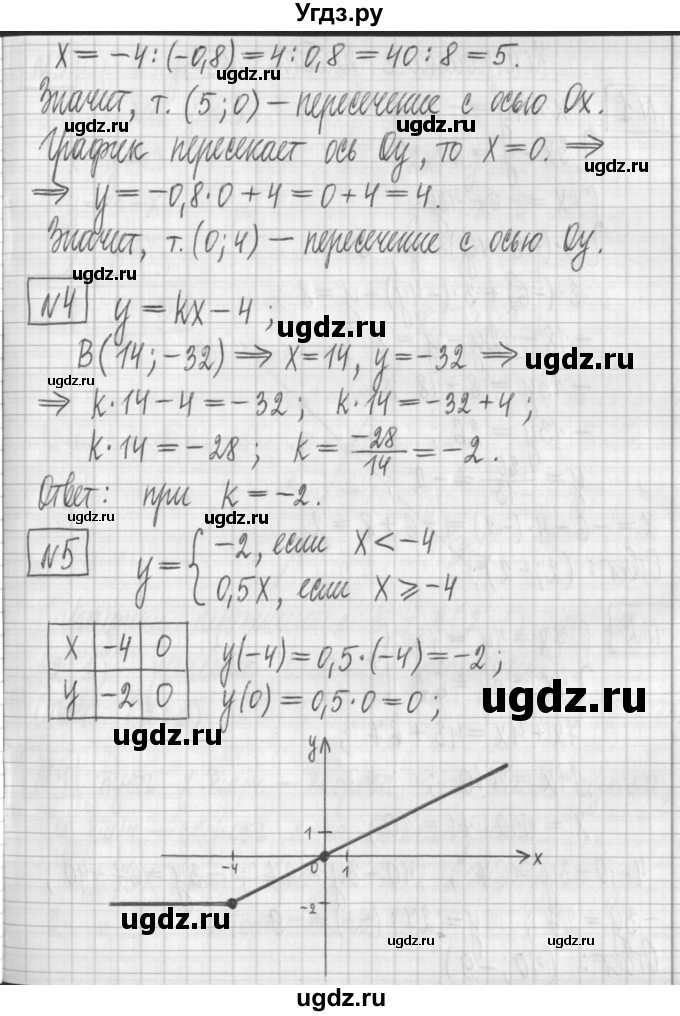 Угдз.ру
x = -4 : (-0,8) = 4 : 0,8 = 40 : 8 = 5.
ugdz.ru
Значит, т. (5; 0) – пересечение с осью Ox.
ugdz.ru ugdz.ru
График пересекает ось Oy, то x = 0. ⇒
ugdz.ru
⇒ y = -0,8·0 + 4 = 0 + 4 = 4.
ugdz.ru
Значит, т. (0; 4) – пересечение с осью Oy.
ugdz.ru
№4 y = kx - 4;
ugdz.ru
B(14; -32) ⇒ x = 14, y = -32 ⇒
ugdz.ru ugdz.ru
⇒ k·14 - 4 = -32; k·14 = -32 + 4;
k·14 = -28; k = -28/14 = -2.
Ответ: при k = -2.
ugdz.ru ugdz.ru
№5 y = { -2, если x < -4
0,5x, если x ⩾ -4
x -4 0 y(-4) = 0,5·(-4) = -2;
y -2 0 y(0) = 0,5·0 = 0;
ugdz.ru
ugdz.ru
y
1
-4 0 1 x
-2
ugdz.ru
ugdz.ru ugdz.ru
ugdz.ru